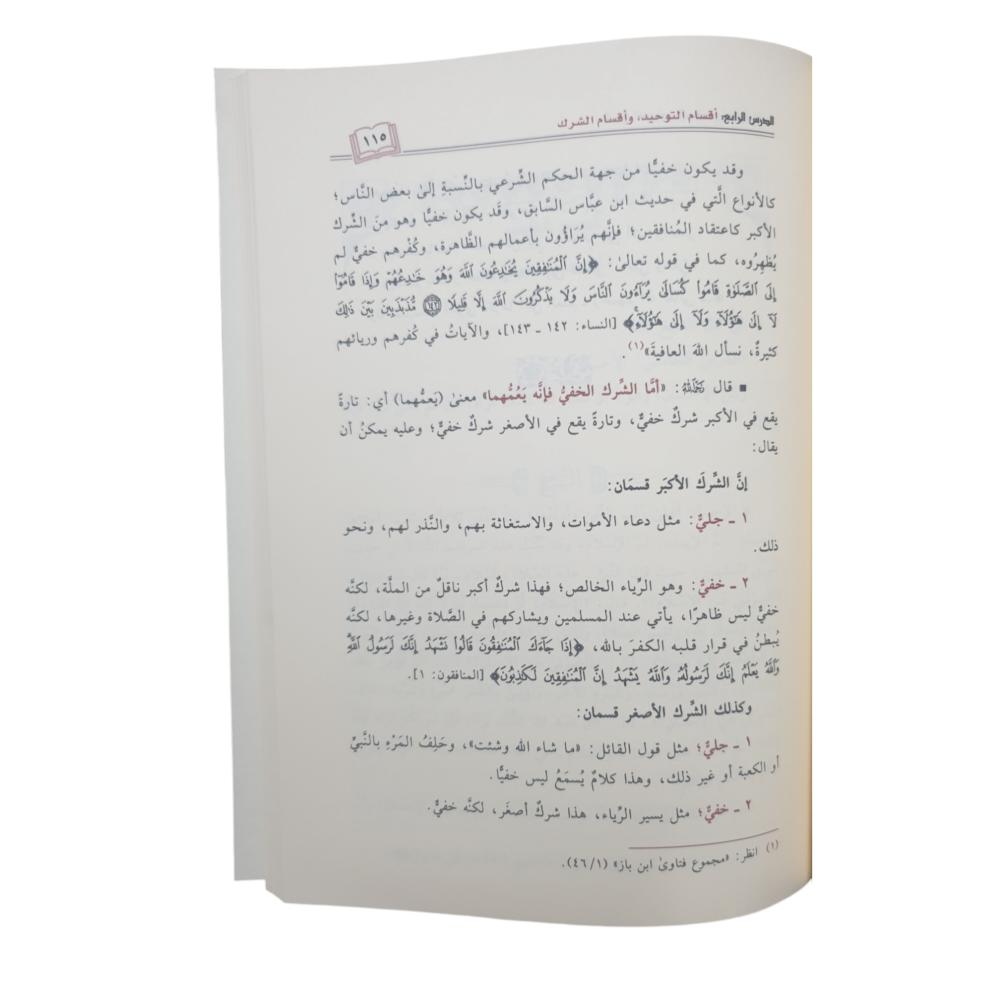 الدرس الرابع: أقسام التوحيد، وأقسام الشرك
١١٥
وقد يكون خفيًّا من جهة الحكم الشَّرعي بالنِّسبةِ إلىٰ بعض النَّاس؛
كالأنواع الَّتي في حديث ابن عبَّاس السَّابق، وقَد يكون خفيًّا وهو منَ الشِّرك
الأكبر كاعتقاد المُنافقين؛ فإنَّهم يُرَاؤُون بأعمالهم الظَّاهرة، وكُفْرهم خفيٌّ لم
يُظهِرُوه، كما في قوله تعالىٰ: ﴿إِنَّ ٱلْمُنَٰفِقِينَ يُخَٰدِعُونَ ٱللَّهَ وَهُوَ خَٰدِعُهُمْ وَإِذَا قَامُوٓا۟
إِلَى ٱلصَّلَوٰةِ قَامُوا۟ كُسَالَىٰ يُرَآءُونَ ٱلنَّاسَ وَلَا يَذْكُرُونَ ٱللَّهَ إِلَّا قَلِيلًا ١٤٢ مُّذَبْذَبِينَ بَيْنَ ذَٰلِكَ
لَآ إِلَىٰ هَٰٓؤُلَآءِ وَلَآ إِلَىٰ هَٰٓؤُلَآءِ﴾ [النساء: ١٤٢ ـ ١٤٣]، والآياتُ في كُفرهم وريائهم
كثيرةٌ، نسأل اللهَ العافيةَ»(١).
▪ قال رَحِمَهُ اللهُ: «أمَّا الشِّرك الخفيُّ فإنَّه يَعُمُّهما» معنىٰ (يَعمُّهما) أي: تارةً
يقع في الأكبر شركٌ خفيٌّ، وتارةً يقع في الأصغر شركٌ خفيٌّ؛ وعليه يمكنُ أن
يقال:
إنَّ الشِّركَ الأكبَر قسمَان:
١ ـ جليٌّ: مثل دعاء الأموات، والاستغاثة بهم، والنَّذر لهم، ونحو
ذلك.
٢ ـ خفيٌّ: وهو الرِّياء الخالص؛ فهذا شركٌ أكبر ناقلٌ من الملَّة، لكنَّه
خفيٌّ ليس ظاهرًا، يأتي عند المسلمين ويشاركهم في الصَّلاة وغيرها، لكنَّه
يُبطنُ في قرار قلبه الكفرَ بالله، ﴿إِذَا جَآءَكَ ٱلْمُنَٰفِقُونَ قَالُوا۟ نَشْهَدُ إِنَّكَ لَرَسُولُ ٱللَّهِ
وَٱللَّهُ يَعْلَمُ إِنَّكَ لَرَسُولُهُۥ وَٱللَّهُ يَشْهَدُ إِنَّ ٱلْمُنَٰفِقِينَ لَكَٰذِبُونَ﴾ [المنافقون: ١].
وكذلك الشِّرك الأصغر قسمان:
١ ـ جليٌّ؛ مثل قول القائل: «ما شاء الله وشئت»، وحَلِفُ المَرْءِ بالنَّبيِّ
أو الكعبة أو غير ذلك، وهذا كلامٌ يُسمَعُ ليس خفيًّا.
٢ ـ خفيٌّ؛ مثل يسير الرِّياء، هذا شركٌ أصغَر، لكنَّه خفيٌّ.
(١) انظر: «مجموع فتاوىٰ ابن باز» (٤٦/١).